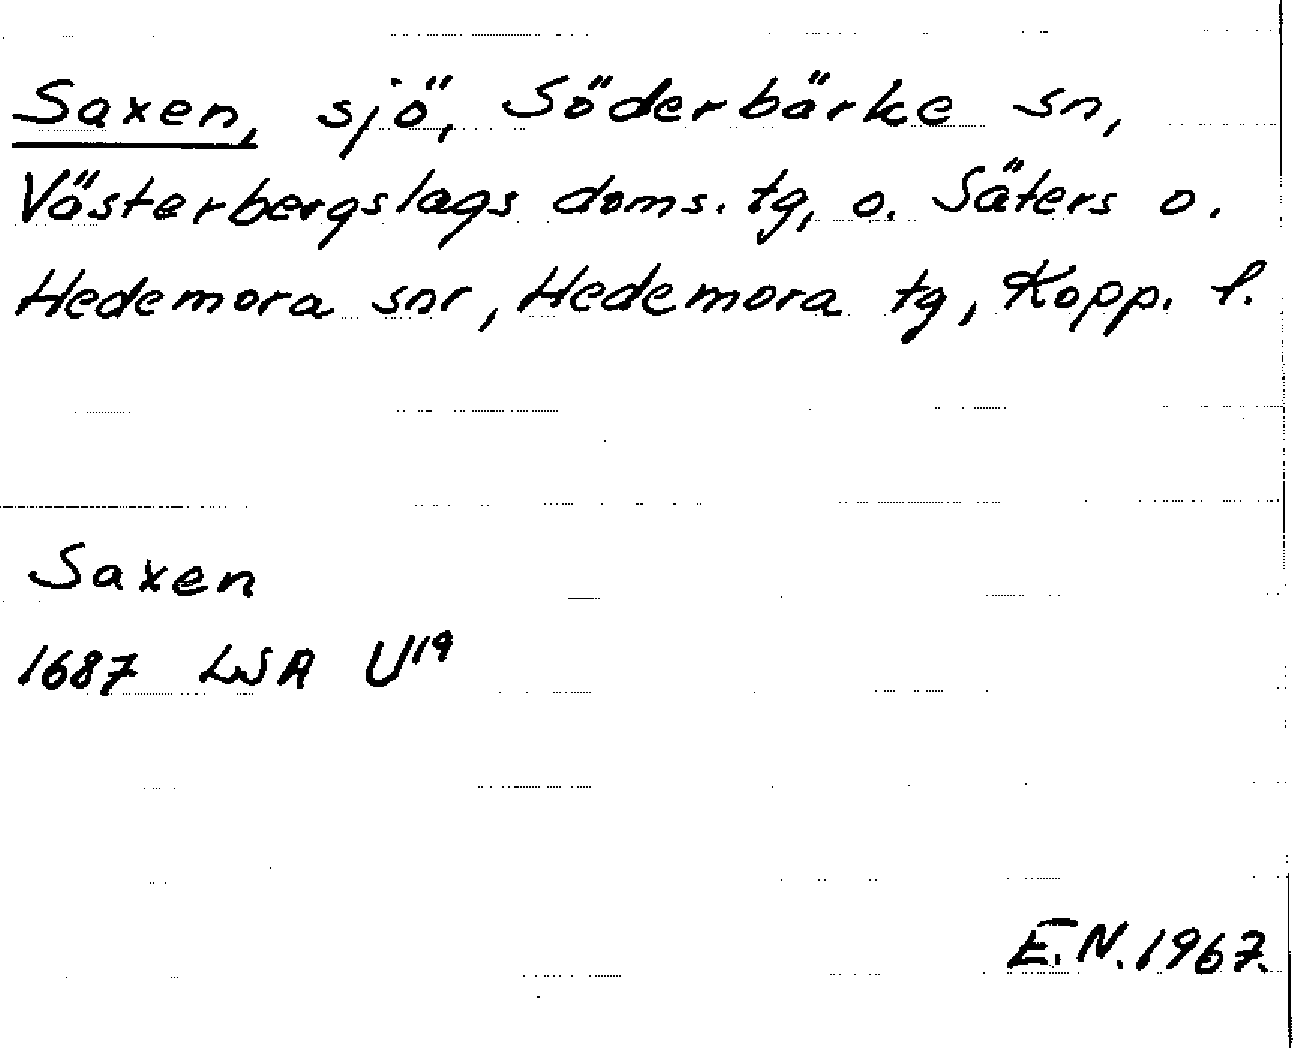 Saxen, sjö, Söderbärke sn,
Västerbergslags doms. tg, o. Säters o.
Hedemora snr, Hedemora tg, Kopp. l.
Saxen
1687 LSA U19
E.N. 1967.